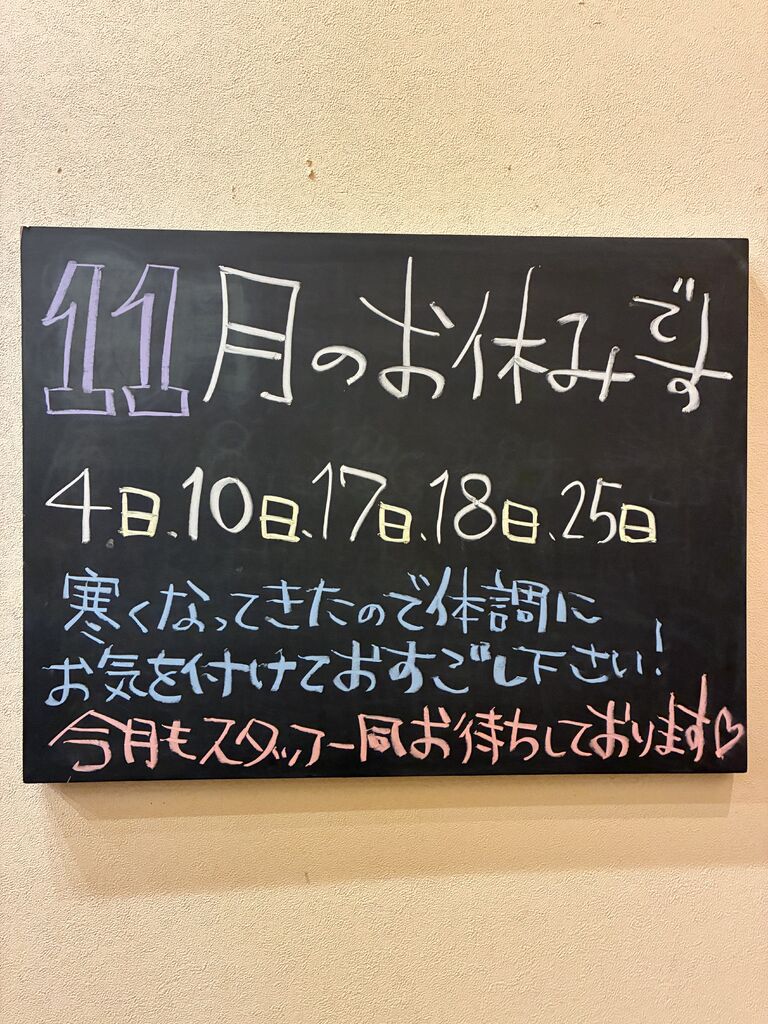 11月のお休みです
4日、10日、17日、18日、25日
寒くなってきたので体調に
お気を付けておすごし下さい!
今月もスタッフ一同お待ちしております♡